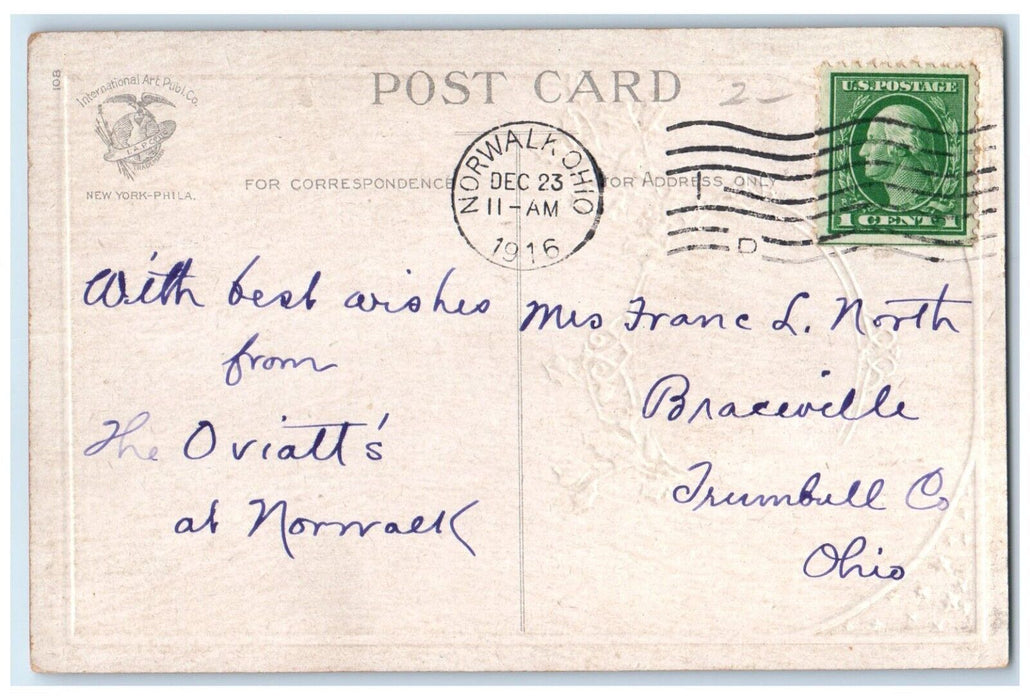 108
International Art Publ. Co.
I.A.P.C.
NEW YORK-PHILA.
POST CARD
2-
U.S. POSTAGE
1 CENT 1
NORWALK OHIO
DEC 23
11-AM
1916
1
D
FOR CORRESPONDENCE
FOR ADDRESS ONLY
With best wishes
from
The Oviatt's
at Norwalk
Mrs Franc L. North
Braceville
Trumbull Co
Ohio